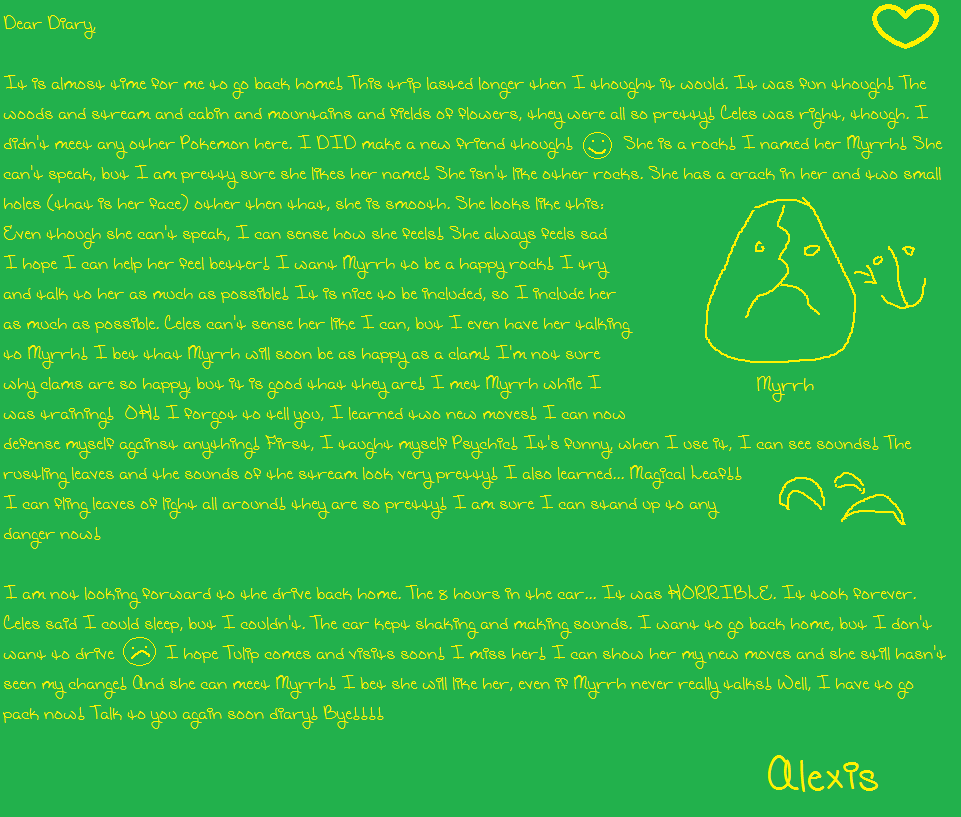 Dear Diary,
It is almost time for me to go back home! This trip lasted longer then I thought it would. It was fun though! The
woods and stream and cabin and mountains and fields of flowers, they were all so pretty! Celes was right, though. I
didn't meet any other Pokemon here. I DID make a new friend though! She is a rock! I named her Myrrh! She
can't speak, but I am pretty sure she likes her name! She isn't like other rocks. She has a crack in her and two small
holes (that is her face) other then that, she is smooth. She looks like this:
Even though she can't speak, I can sense how she feels! She always feels sad
I hope I can help her feel better! I want Myrrh to be a happy rock! I try
and talk to her as much as possible! It is nice to be included, so I include her
as much as possible. Celes can't sense her like I can, but I even have her talking
to Myrrh! I bet that Myrrh will soon be as happy as a clam! I'm not sure
why clams are so happy, but it is good that they are! I met Myrrh while I
Myrrh
was training! OH! I forgot to tell you, I learned two new moves! I can now
defense myself against anything! First, I taught myself Psychic! It's funny, when I use it, I can see sounds! The
rustling leaves and the sounds of the stream look very pretty! I also learned... Magical Leaf!!
I can fling leaves of light all around! they are so pretty! I am sure I can stand up to any
danger now!
I am not looking forward to the drive back home. The 8 hours in the car... It was HORRIBLE. It took forever.
Celes said I could sleep, but I couldn't. The car kept shaking and making sounds. I want to go back home, but I don't
want to drive I hope Tulip comes and visits soon! I miss her! I can show her my new moves and she still hasn't
seen my change! And she can meet Myrrh! I bet she will like her, even if Myrrh never really talks! Well, I have to go
pack now! Talk to you again soon diary! Bye!!!!
Alexis